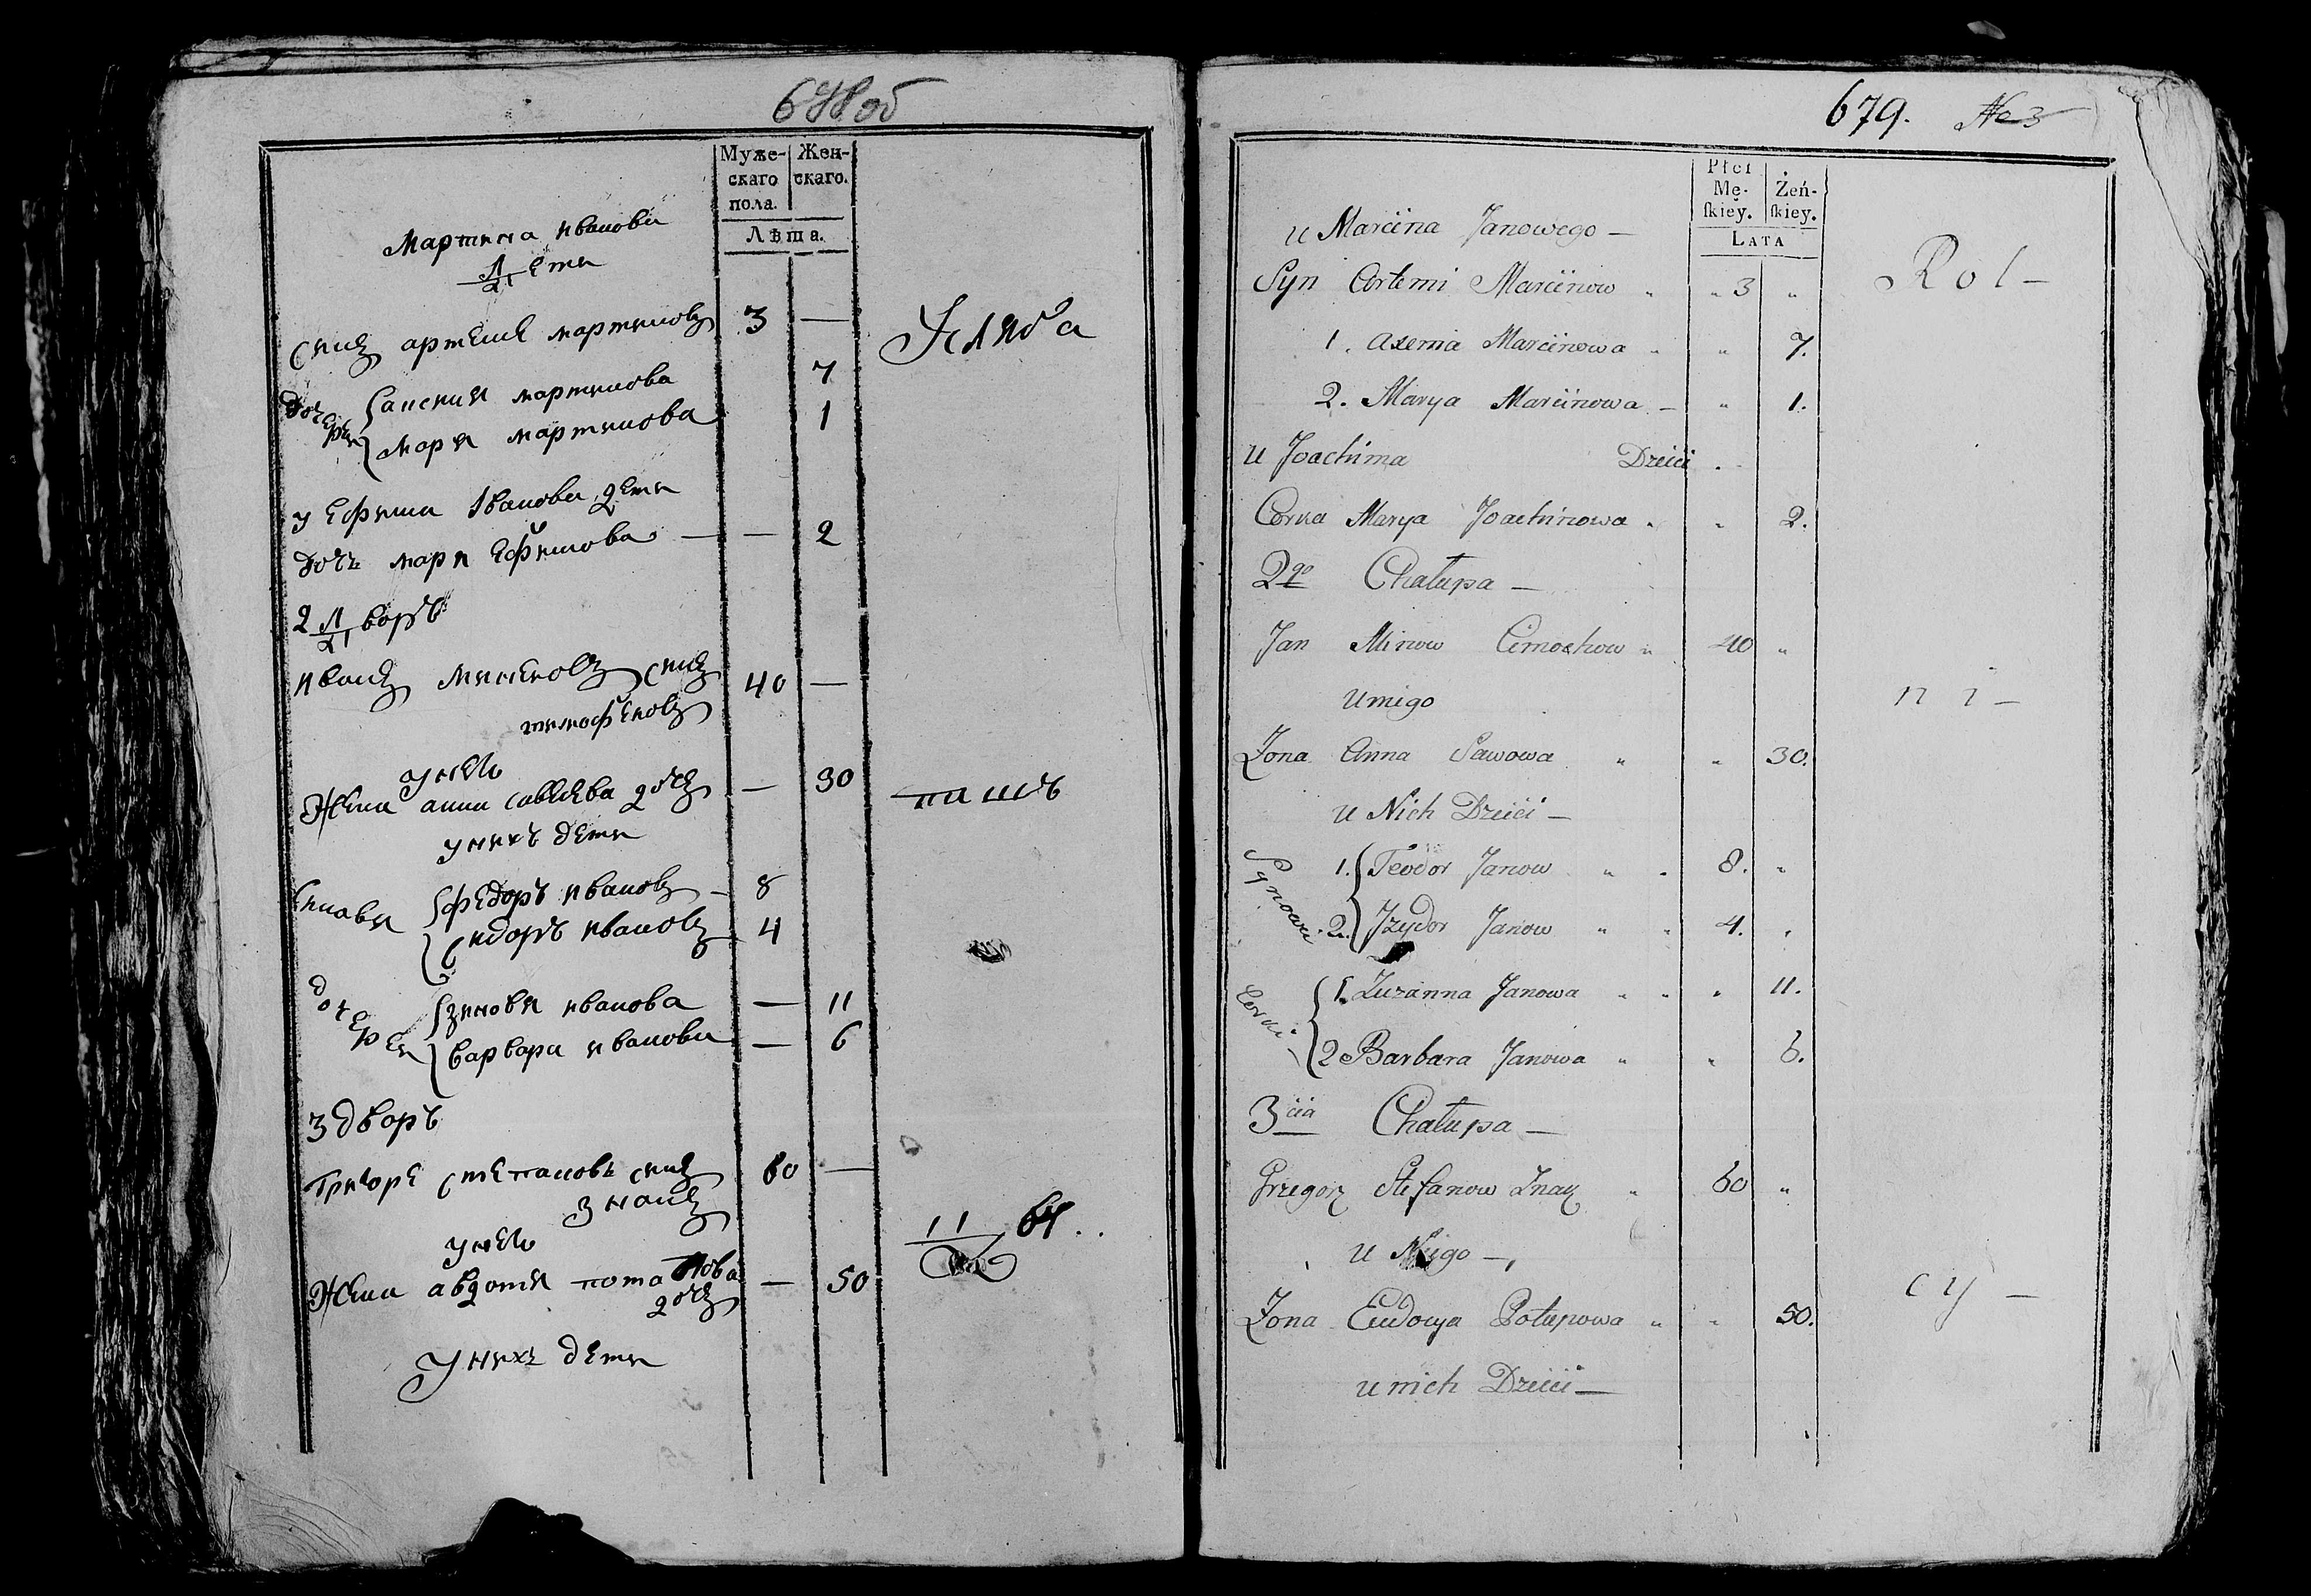 678 об
Муже-
скаго
пола.
Жен-
скаго.
Лѣта.
Мартина иванова
Дети
Сынъ артеми мартиновъ 3 —
Дочери аксиния мартинова 7
мария мартинова 1
у ефима иванова дети
Дочь мария ефимова — — 2
2 Дворъ
иванъ миненовъ сынъ 40 —
тимофѣевъ
у него
Жена анна савеева дочъ — 30
у нихъ дети
Сыновья федоръ ивановъ — 8
сидоръ ивановъ 4
дочери зиновья иванова — 11
варвара иванова — 6
3 дворъ
Григоре степановъ сынъ 60 —
знакъ
у него
Жена авдотья потапова — 50
дочъ
у нихъ дети
11
679. No 3
Płci
Mę-
ſkiéy.
Żeń-
ſkiey.
LATA
u Marcina Janowego —
Syn Artemi Marcinow " " 3 "
Rol —
1. Axenia Marcinowa " " 7.
2. Marya Marcinowa — " 1.
U Joachima Dzieci .
Corka Marya Joachimowa . " 2.
2go Chałupa —
Jan Minow Cimochow " 40 "
U niego
n i —
Zona Anna Sawowa " " 30.
u Nich Dzieci —
Synowi 1. Teodor Janow " . 8. "
2. Jzydor Janow " " 4. "
Corki 1. Zuzanna Janowa " " " 11.
2 Barbara Janowa " " 6.
3cia Chałupa —
Grzegorz Stefanow Znak " 60 "
u Niego —
Zona Eudocya Potapowa " " 50.
cy —
u nich Dzieci —